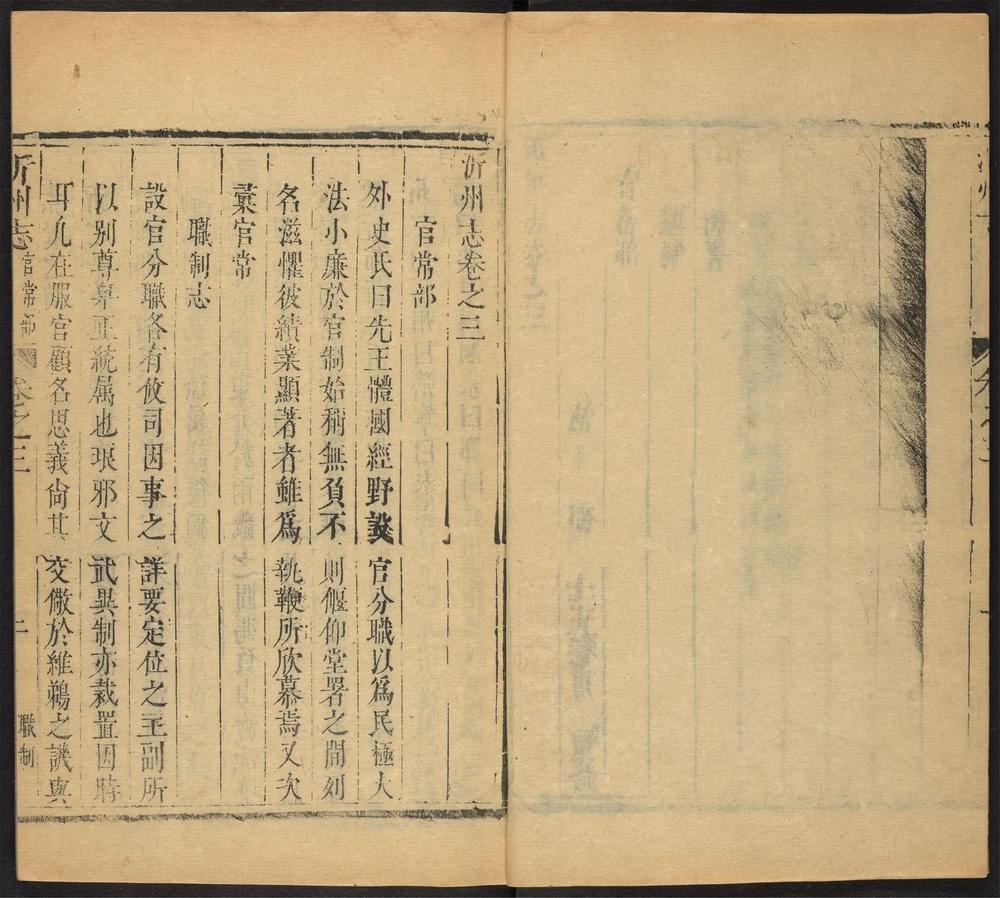 沂州志卷之三
官常部
外史氏曰先王體國經野設官分職以爲民極大
法小廉於官制始稱無負不則偃仰堂署之間列
名滋懼彼績業顯著者雖爲執鞭所欣慕焉又次
彙官常
職制志
設官分職各有攸司因事之詳要定位之主副所
以别尊卑正統属也琅邪文武異制亦裁置因時
耳凡在服官顧名思義尚其交儆於維鵜之譏與
沂州志 官常部 卷之三 二 職制